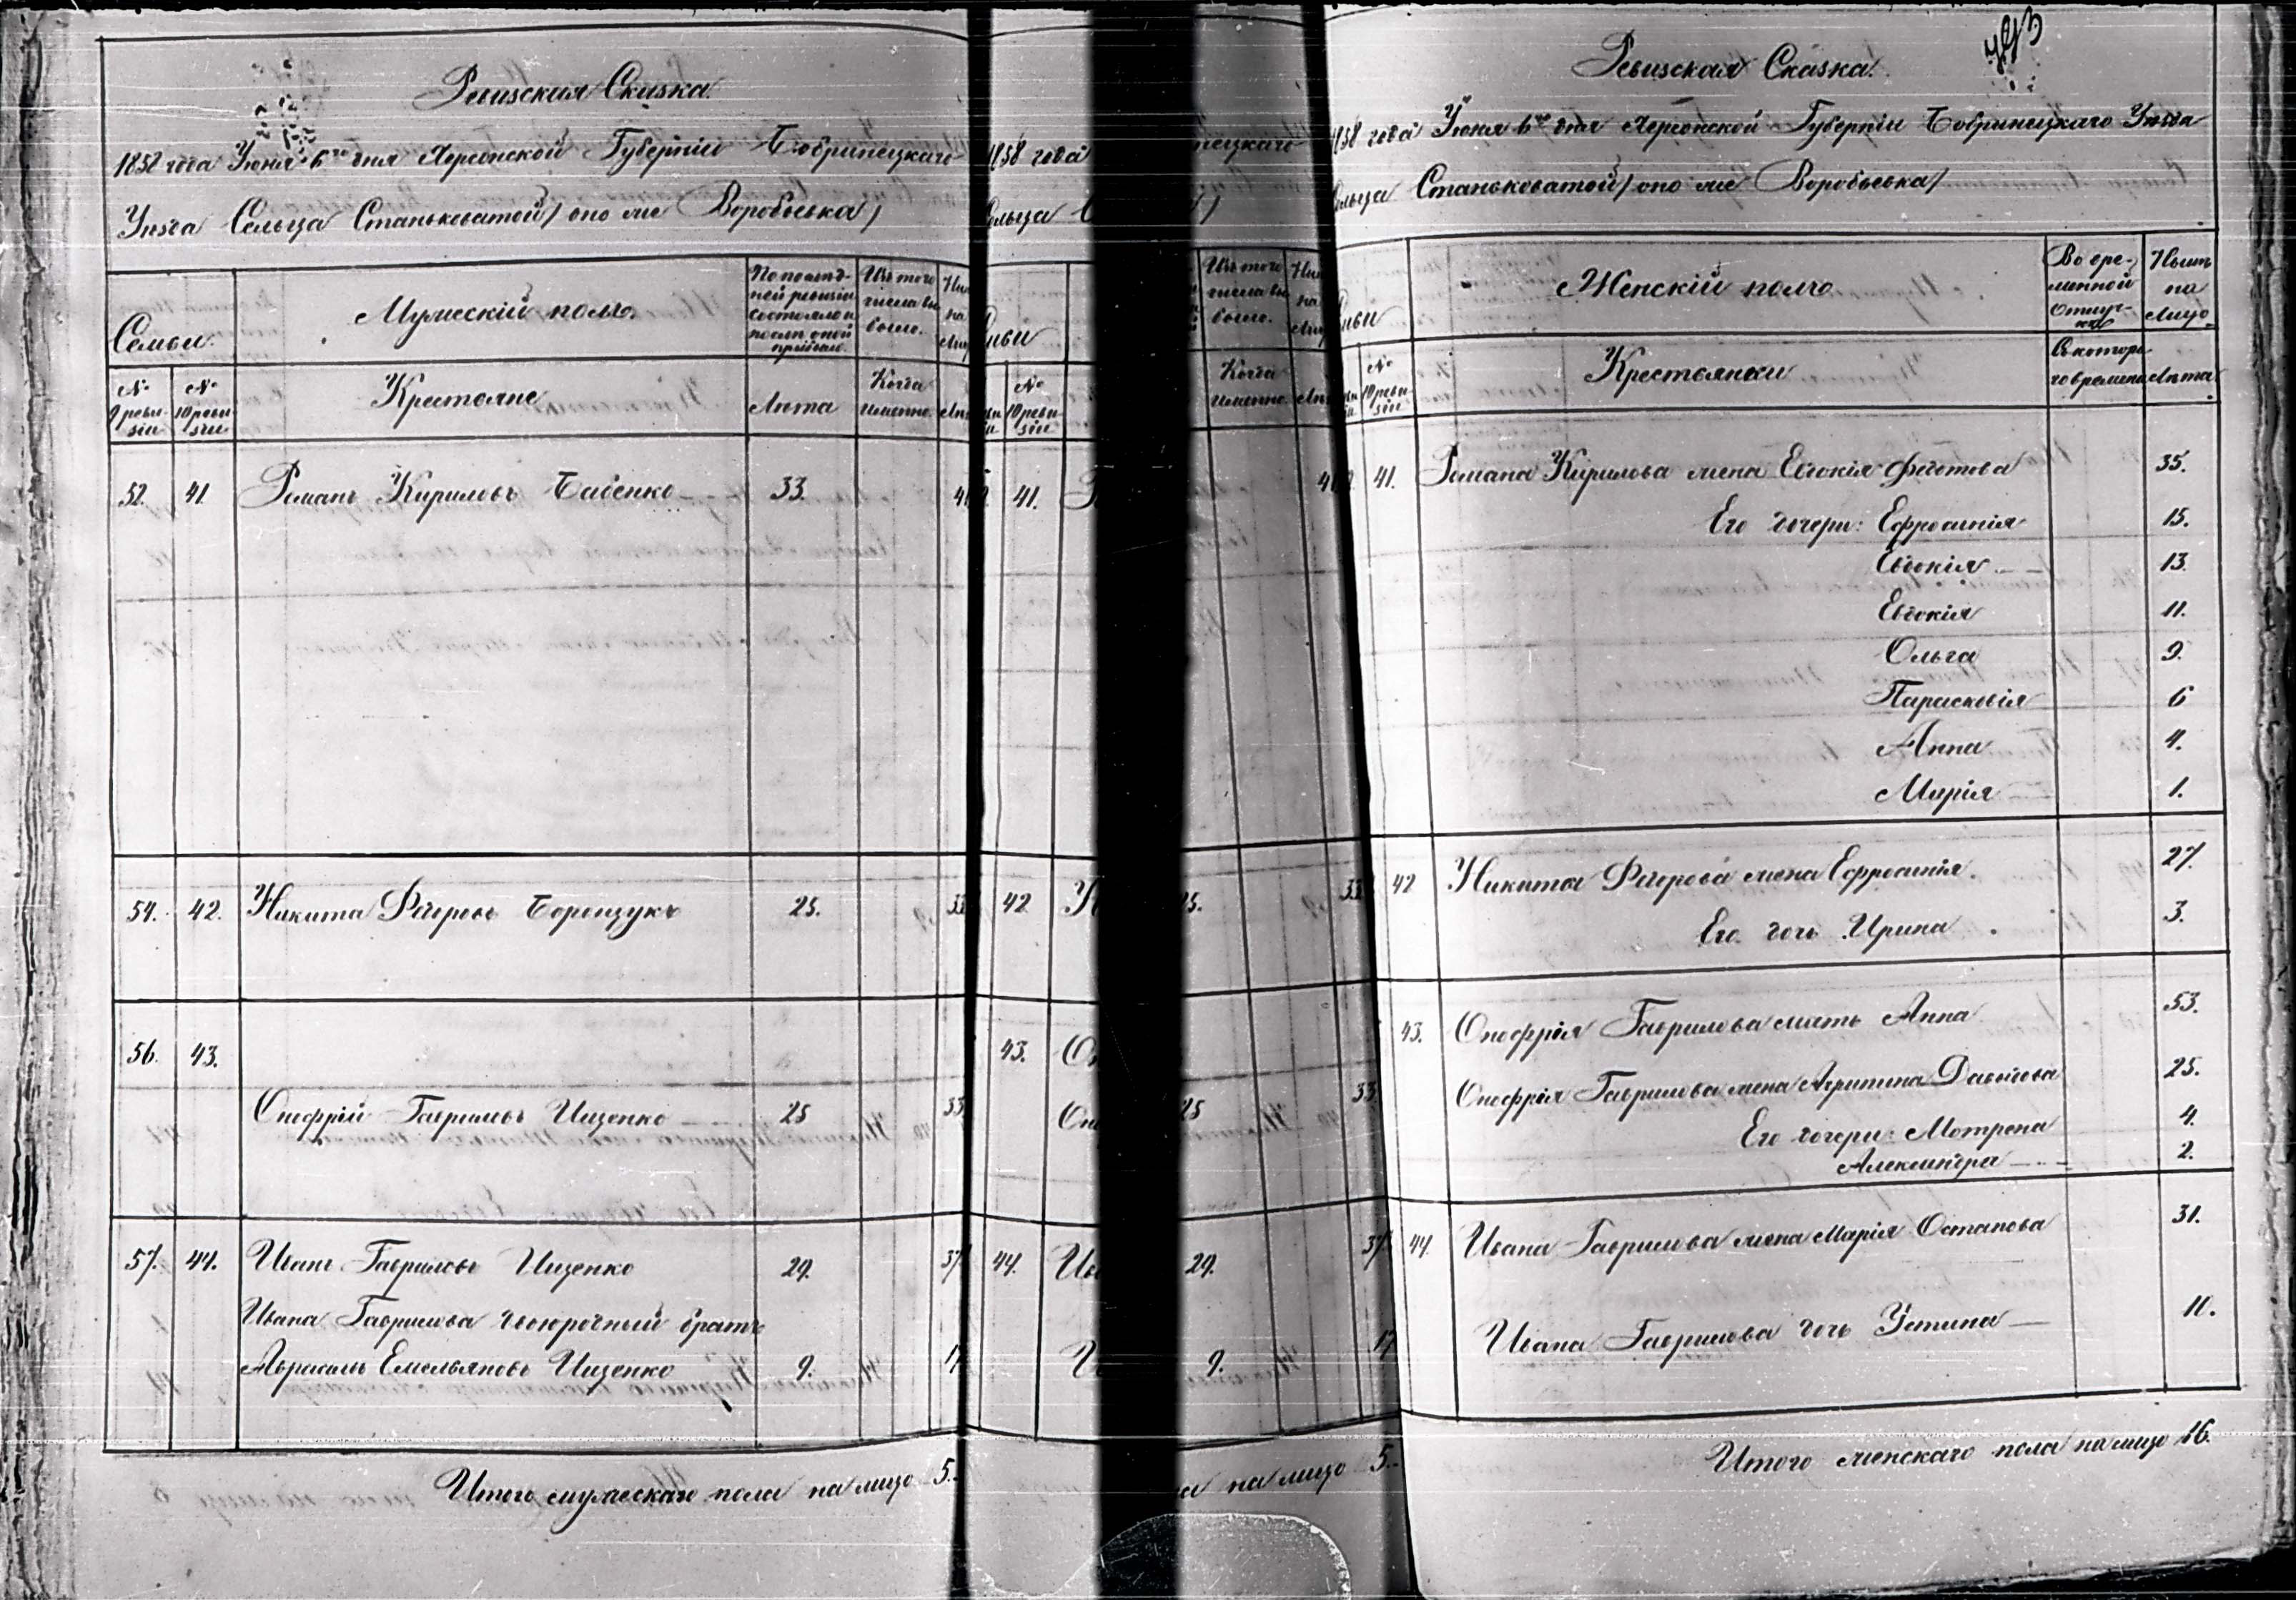 Ревизская Сказка.
1858 года Июня 6го дня Херсонской Губерніи Бобринецкаго
Уезда Сельца Станьковатой) оно же Воробьевка)
Семьи.
Мужескій полъ.
По послѣд-
ней ревизіи
состояло и
послѣ оной
прибыло.
Изъ того
числа вы
было.
№
9 реви-
зіи
№
10 реви-
зіи
Крестьяне
Лѣта
Когда
именно.
52. 41. Романъ Кириловъ Бабенко 33.
54. 42. Никита Федоровъ Борощукъ 25. 33
56. 43.
Онофрій Гавриловъ Ищенко 25 33
57. 44. Иванъ Гавриловъ Ищенко 29. 37
Ивана Гаврилова двоюродный братъ
Авраамъ Емельяновъ Ищенко 9. 17
Итого мужескаго пола на лицо 5.
1858 года
нецкаго
Изъ того
числа вы
было.
№
10 реви-
зіи
Когда
именно.
41.
42
43.
33
25
44. 29. 37
9. 17
на лицо 5.
773
Ревизская Сказка.
1858 года Июня 6го дня Херсонской Губерніи Бобринецкаго Уезда
Сельца Станьковатой) оно же Воробьевка)
Женскій полъ
Во вре-
менной
отлуч-
кѣ
Нынѣ
на
лицо.
№
10 реви-
зіи
Крестьянки
Съ котора-
го времени
Лѣта
41. Романа Кирилова жена Евдокія Федотова 35.
Его дочери: Ефросинія 15.
Евдокія 13.
Евдокія 11.
Ольга 9.
Парасковія 6
Анна 4.
Марія 1.
42 Никита Федорова жена Ефросинія. 27
Его дочь Ирина. 3.
43. Онофрія Гаврилова мать Анна 53.
Онофрія Гаврилова жена Агрипина Давидова 25.
Его дочери: Мотрена 4.
Александра 2.
44. Ивана Гаврилова жена Марія Остапова 31.
Ивана Гаврилова дочь Устина 10.
Итого женскаго пола на лицо 16.